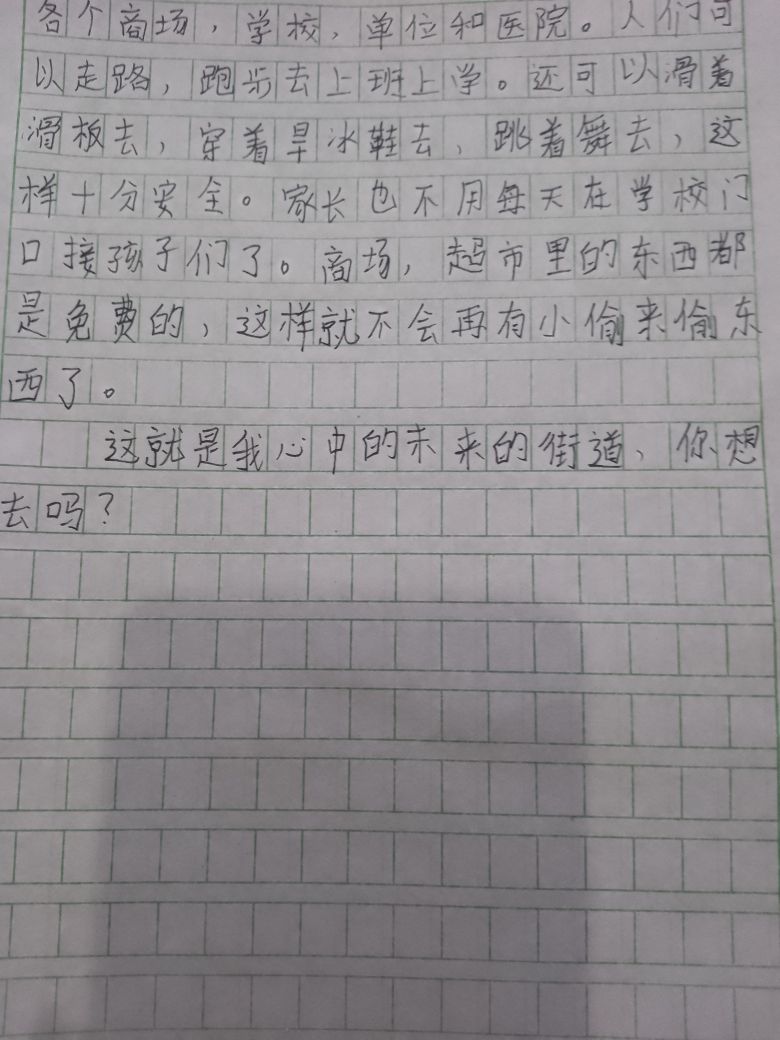 各个商场，学校，单位和医院。人们可
以走路，跑步去上班上学。还可以滑着
滑板去，穿着旱冰鞋去、跳着舞去，这
样十分安全。家长也不用每天在学校门
口接孩子们了。商场，超市里的东西都
是免费的，这样就不会再有小偷来偷东
西了。
这就是我心中的未来的街道、你想
去吗？